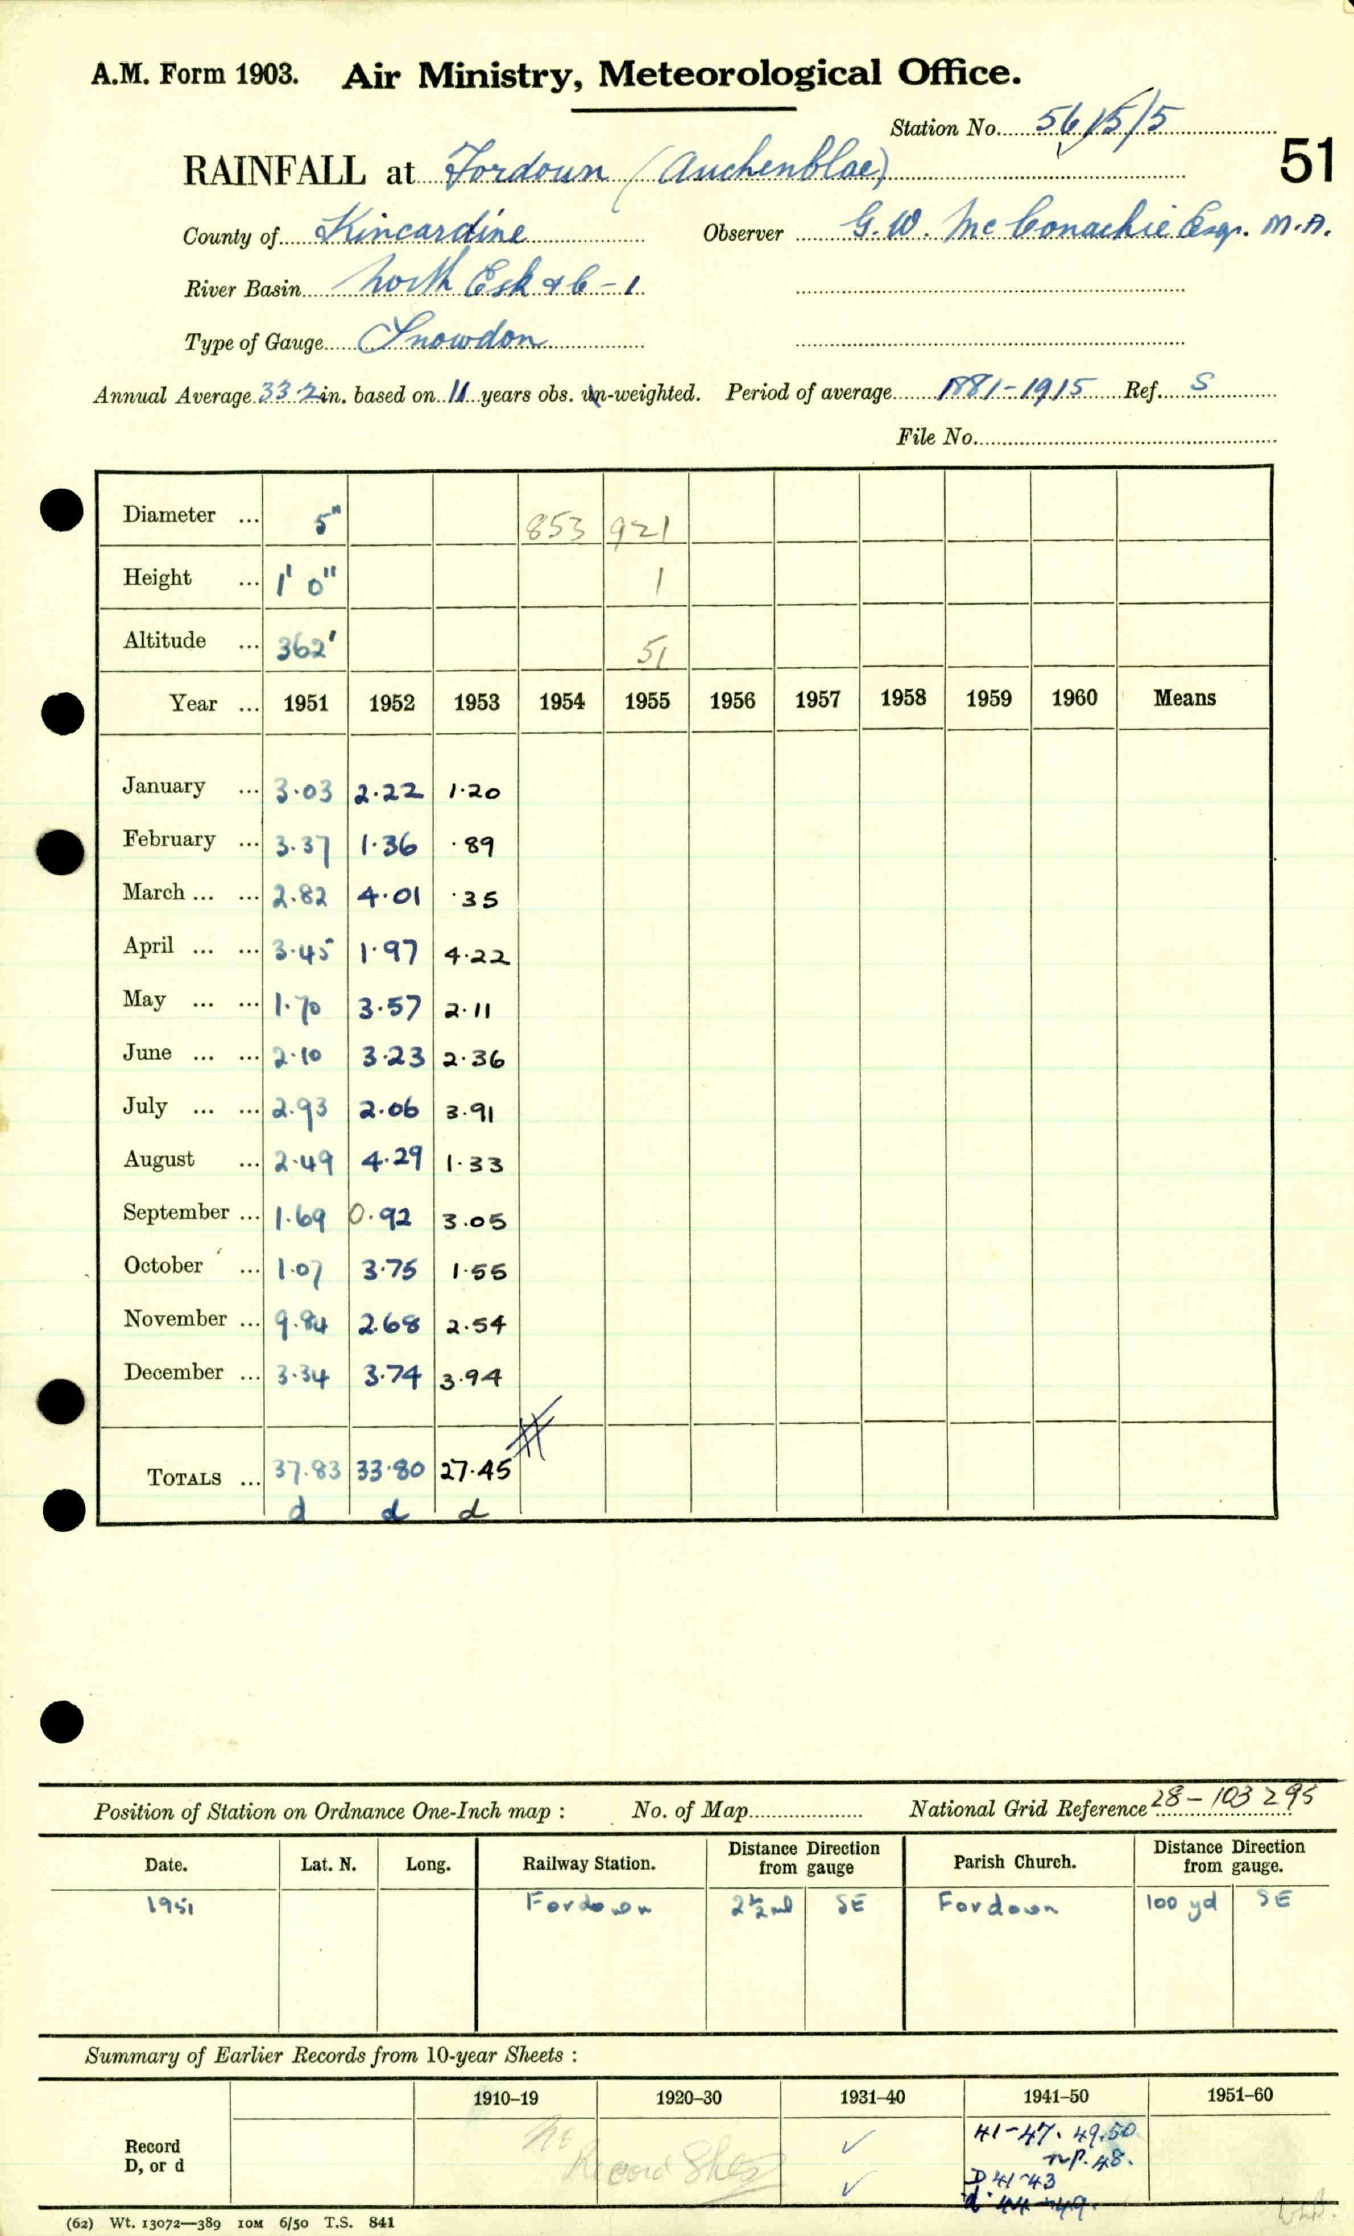 A.M. Form 1903. Air Ministry, Meteorological Office.
Station No. 56/5/5
51
RAINFALL at Fordoun (Auchenblae)
County of Kincardine Observer G.W. McConachie Esqr. M.A.
River Basin North Esk & C-1
Type of Gauge Snowdon
Annual Average 33.2 in. based on 11 years obs. un-weighted. Period of average 1881-1915 Ref. S
File No.
Diameter ... 5" 853 921
Height ... 1' 0" 1
Altitude ... 362' 51
Year ... 1951 1952 1953 1954 1955 1956 1957 1958 1959 1960 Means
January ... 3.03 2.22 1.20
February ... 3.37 1.36 .89
March ... ... 2.82 4.01 .35
April ... ... 3.45 1.97 4.22
May ... ... 1.70 3.57 2.11
June ... ... 2.10 3.23 2.36
July ... ... 2.93 2.06 3.91
August ... 2.49 4.29 1.33
September ... 1.69 0.92 3.05
October ... 1.07 3.75 1.55
November ... 9.84 2.68 2.54
December ... 3.34 3.74 3.94
TOTALS ... 37.83 33.80 27.45
d d d
Position of Station on Ordnance One-Inch map : No. of Map National Grid Reference 28-103295
Date. Lat. N. Long. Railway Station. Distance from Direction gauge Parish Church. Distance from Direction gauge.
1951 Fordoun 2½ml SE Fordoun 100 yd SE
Summary of Earlier Records from 10-year Sheets :
1910–19 1920–30 1931–40 1941–50 1951–60
Record D, or d No Record Sheet ✓ ✓ 41-47. 49.50
n.p. 48.
D 41-43
d 44-49.
(62) Wt. 13072—389 10M 6/50 T.S. 841